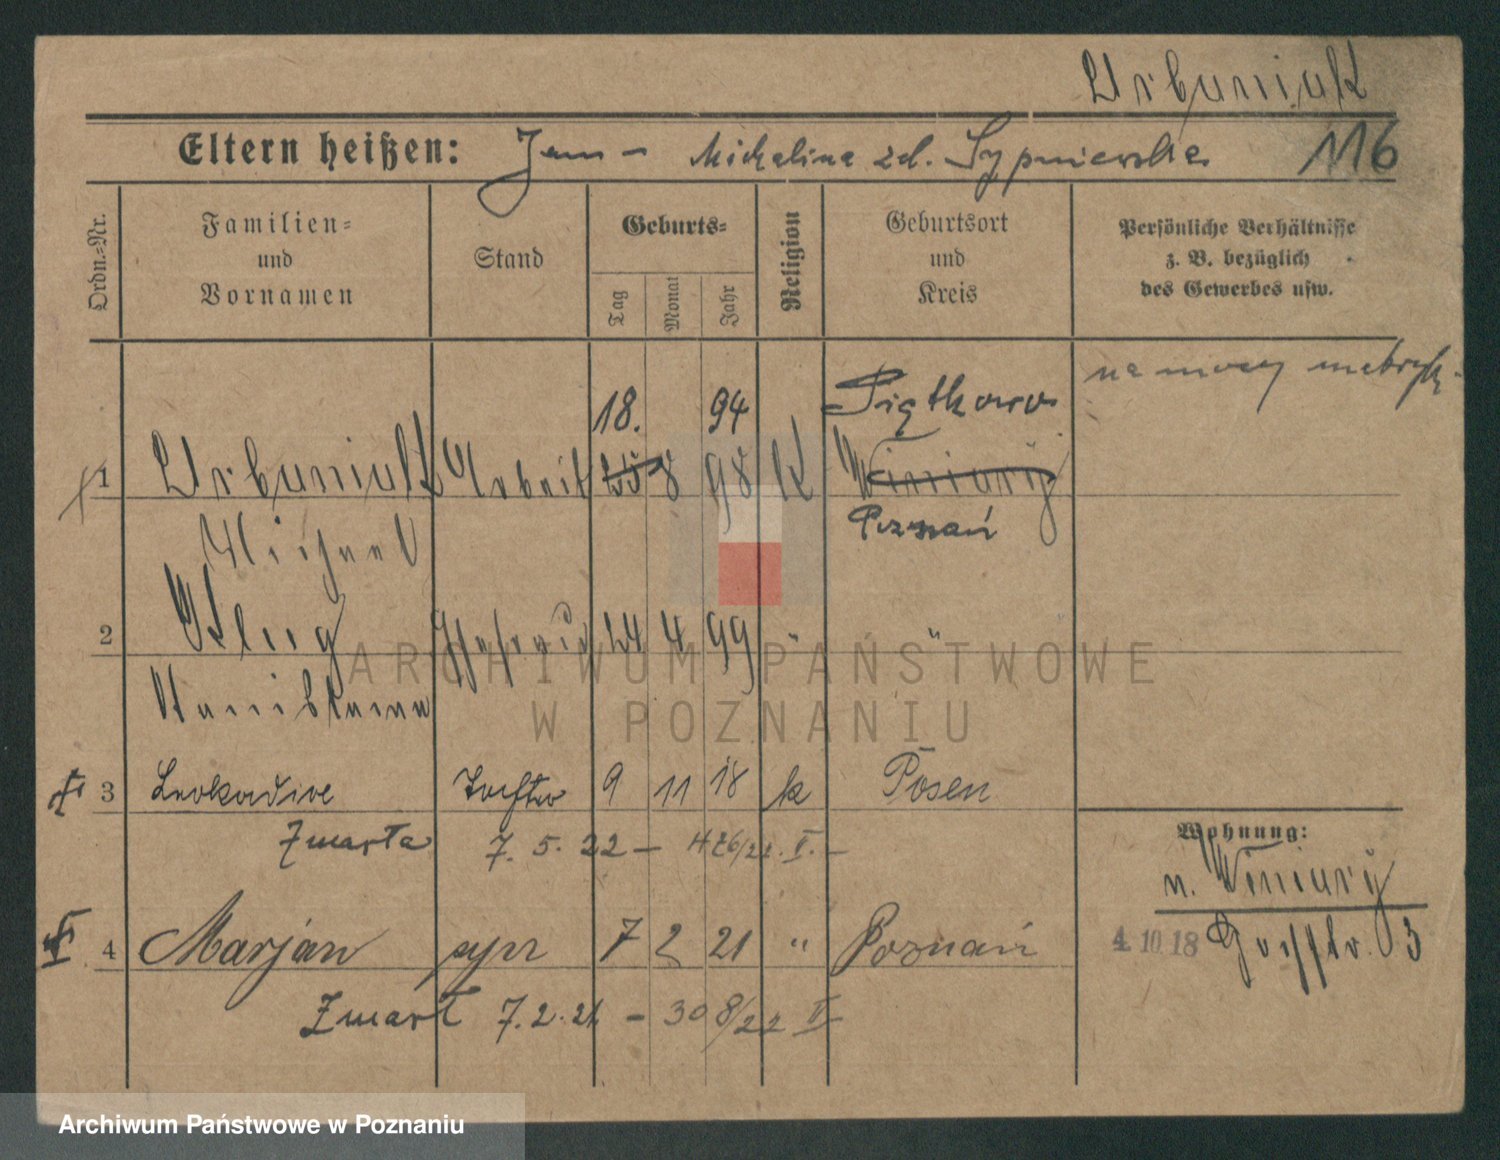 Urbaniak
Eltern heißen: Jan - Michalina zd. Sypniewska 116
Ordn.-Nr.
Familien- und Vornamen
Stand
Geburts-
Tag
Monat
Jahr
Religion
Geburtsort und Kreis
Persönliche Verhältnisse z. B. bezüglich des Gewerbes usw.
18. 94 Piątkowo na mocy metryk.
1 Urbaniak Arbeit 25 8 98 K Winiary
Michael Poznań
2 Klug Ehefrau 24 4 99 " "
Stanislawa
3 Leokadie Tochter 9 11 18 k Posen
Zmarła 7. 5. 22 - 476/22. II. -
Wohnung:
n. Winiary
4 Marjan syn 7 2 21 " Poznań 4. 10. 18 3
Zmarł 7. 2. 21 - 308/22 II -
ARCHIWUM PAŃSTWOWE
W POZNANIU
Archiwum Państwowe w Poznaniu